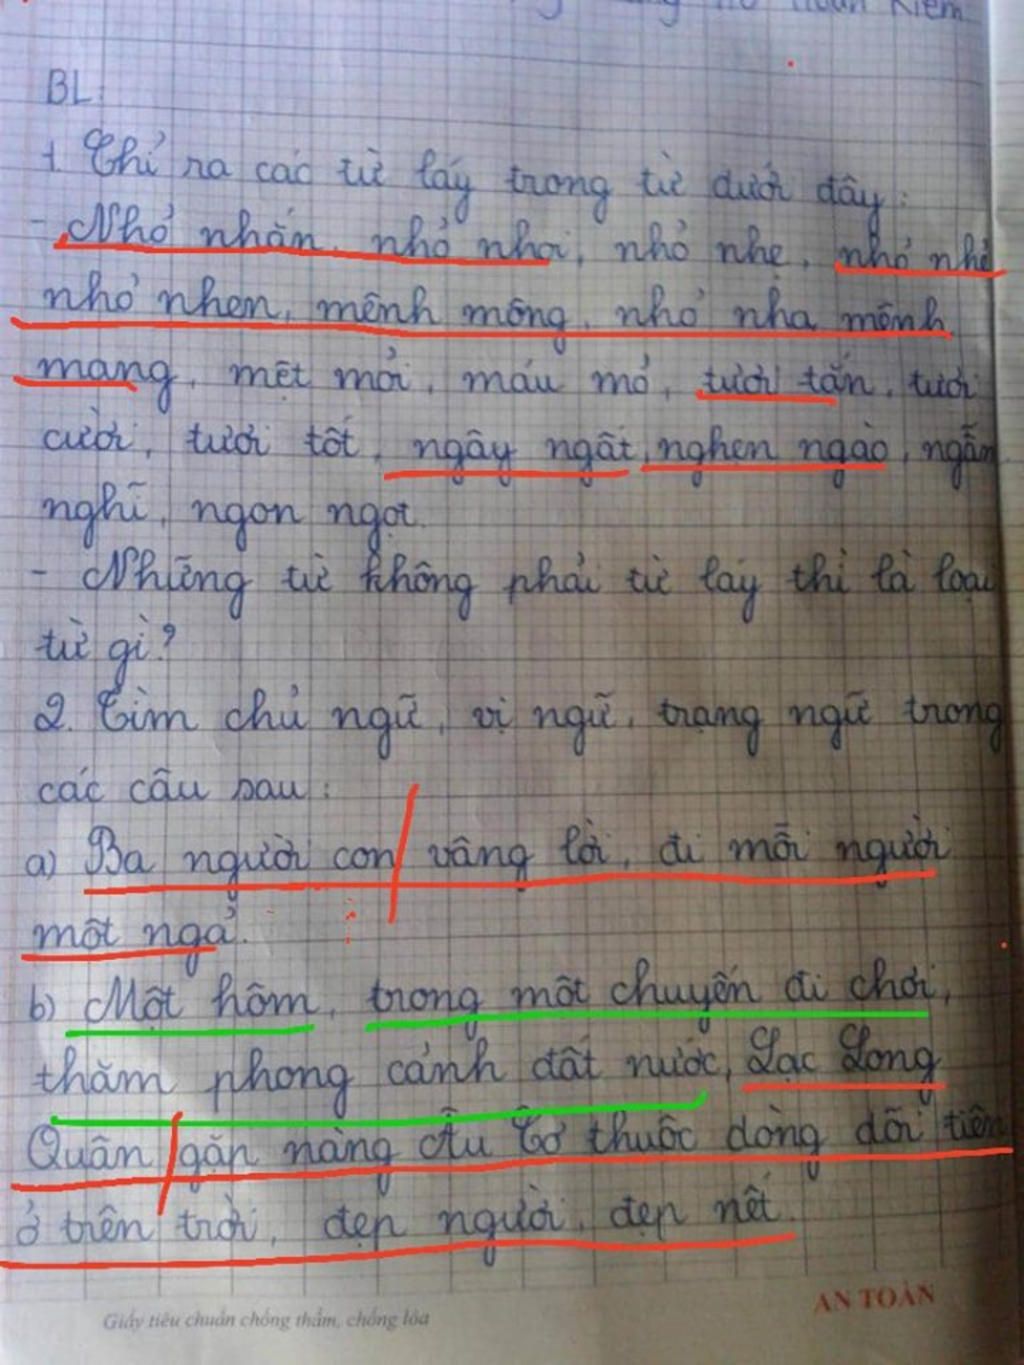 Hoàn Kiếm
BL:
1. Chỉ ra các từ láy trong từ dưới đây:
- Nhỏ nhắn, nhỏ nhoi, nhỏ nhẹ, nhỏ nhẻ
nhỏ nhen, mênh mông, nhỏ nha mênh
mang, mệt mỏi, máu mỏ, tươi tắn, tươi
cười, tươi tốt, ngây ngất, nghẹn ngào, ngẫm
nghĩ, ngon ngọt.
- Những từ không phải từ láy thì là loại
từ gì?
2. Tìm chủ ngữ, vị ngữ, trạng ngữ trong
các câu sau:
a) Ba người con vâng lời, đi mỗi người
một ngả.
b) Một hôm, trong một chuyến đi chơi,
thăm phong cảnh đất nước, Lạc Long
Quân gặp nàng Âu Cơ thuộc dòng dõi tiên
ở trên trời, đẹp người, đẹp nết.
Giấy tiêu chuẩn chống thấm, chống lóa
AN TOÀN